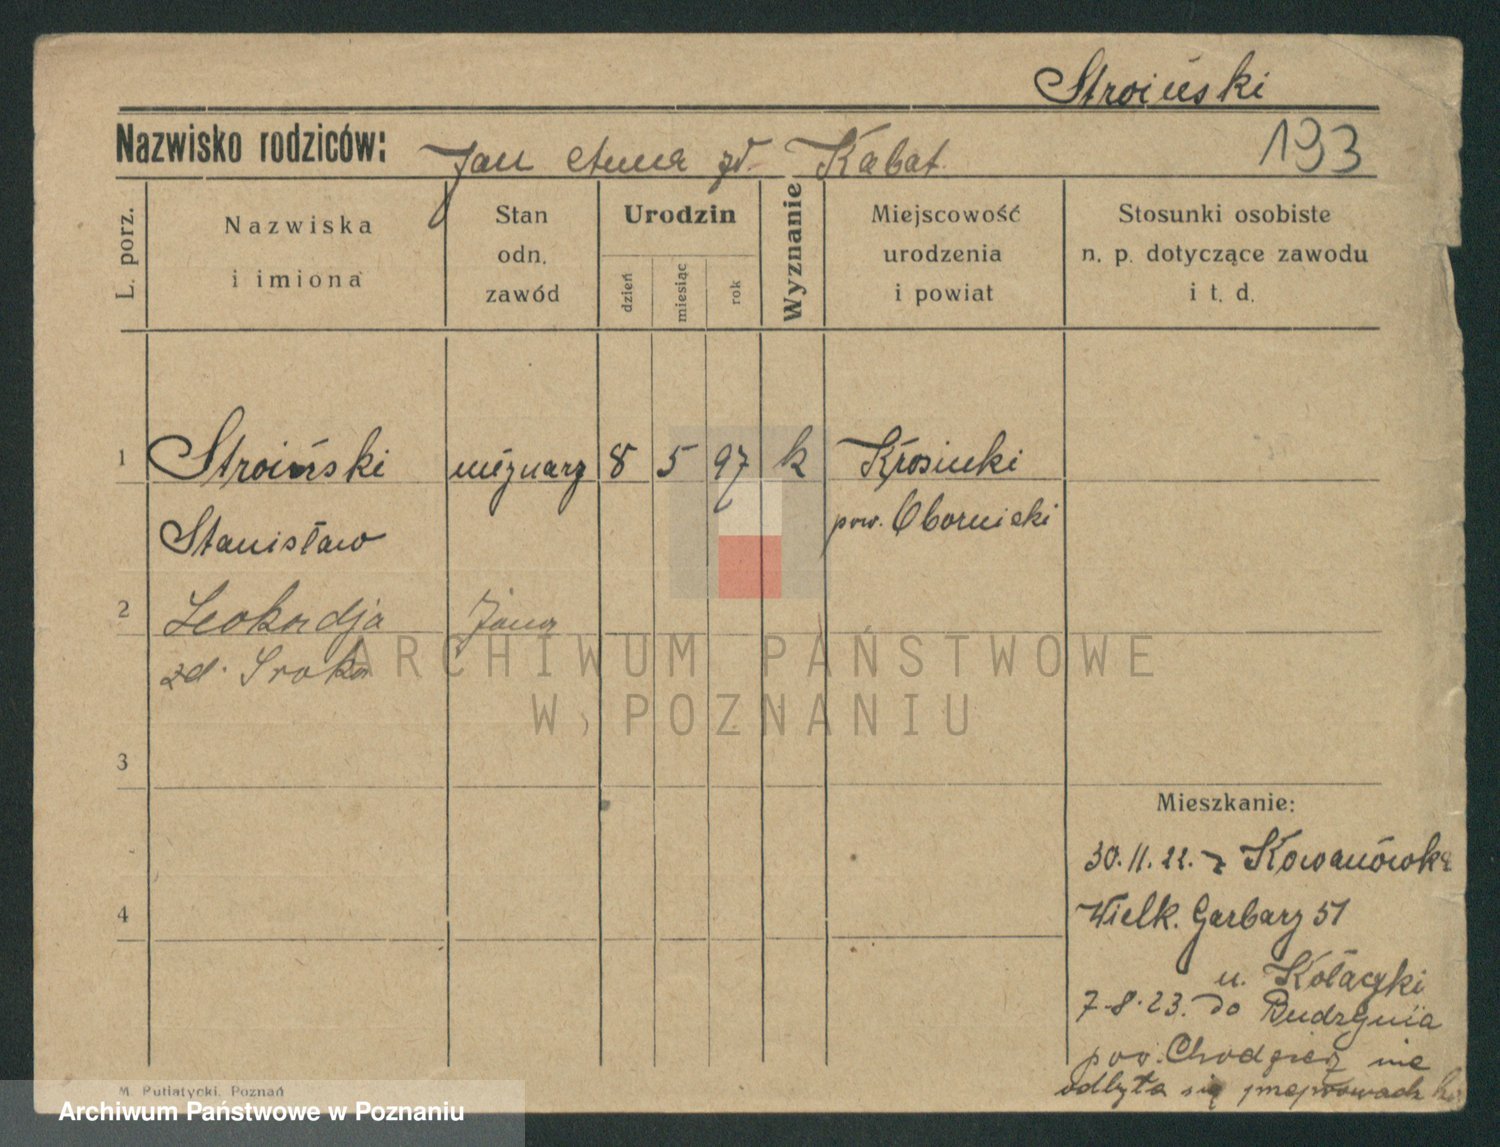 Stroiński
Nazwisko rodziców: Jan Anna zd. Kabat.
193
L. porz.
Nazwiska
i imiona
Stan
odn.
zawód
Urodzin
dzień
miesiąc
rok
Wyznanie
Miejscowość
urodzenia
i powiat
Stosunki osobiste
n. p. dotyczące zawodu
i t. d.
1 Stroiński 8 5 97 k Krosinki
Stanisław pow. Obornicki
2 Leokadja żona
zd. Sroka
3
Mieszkanie:
30.11.22. z Kowanówka
4
Wielk. Garbary 51
u. Kołaczki
7.8.23. do Budzynia
pow. Chodzież nie
odbyła się
M. Putiatycki, Poznań
Archiwum Państwowe w Poznaniu
ARCHIWUM PAŃSTWOWE
W POZNANIU